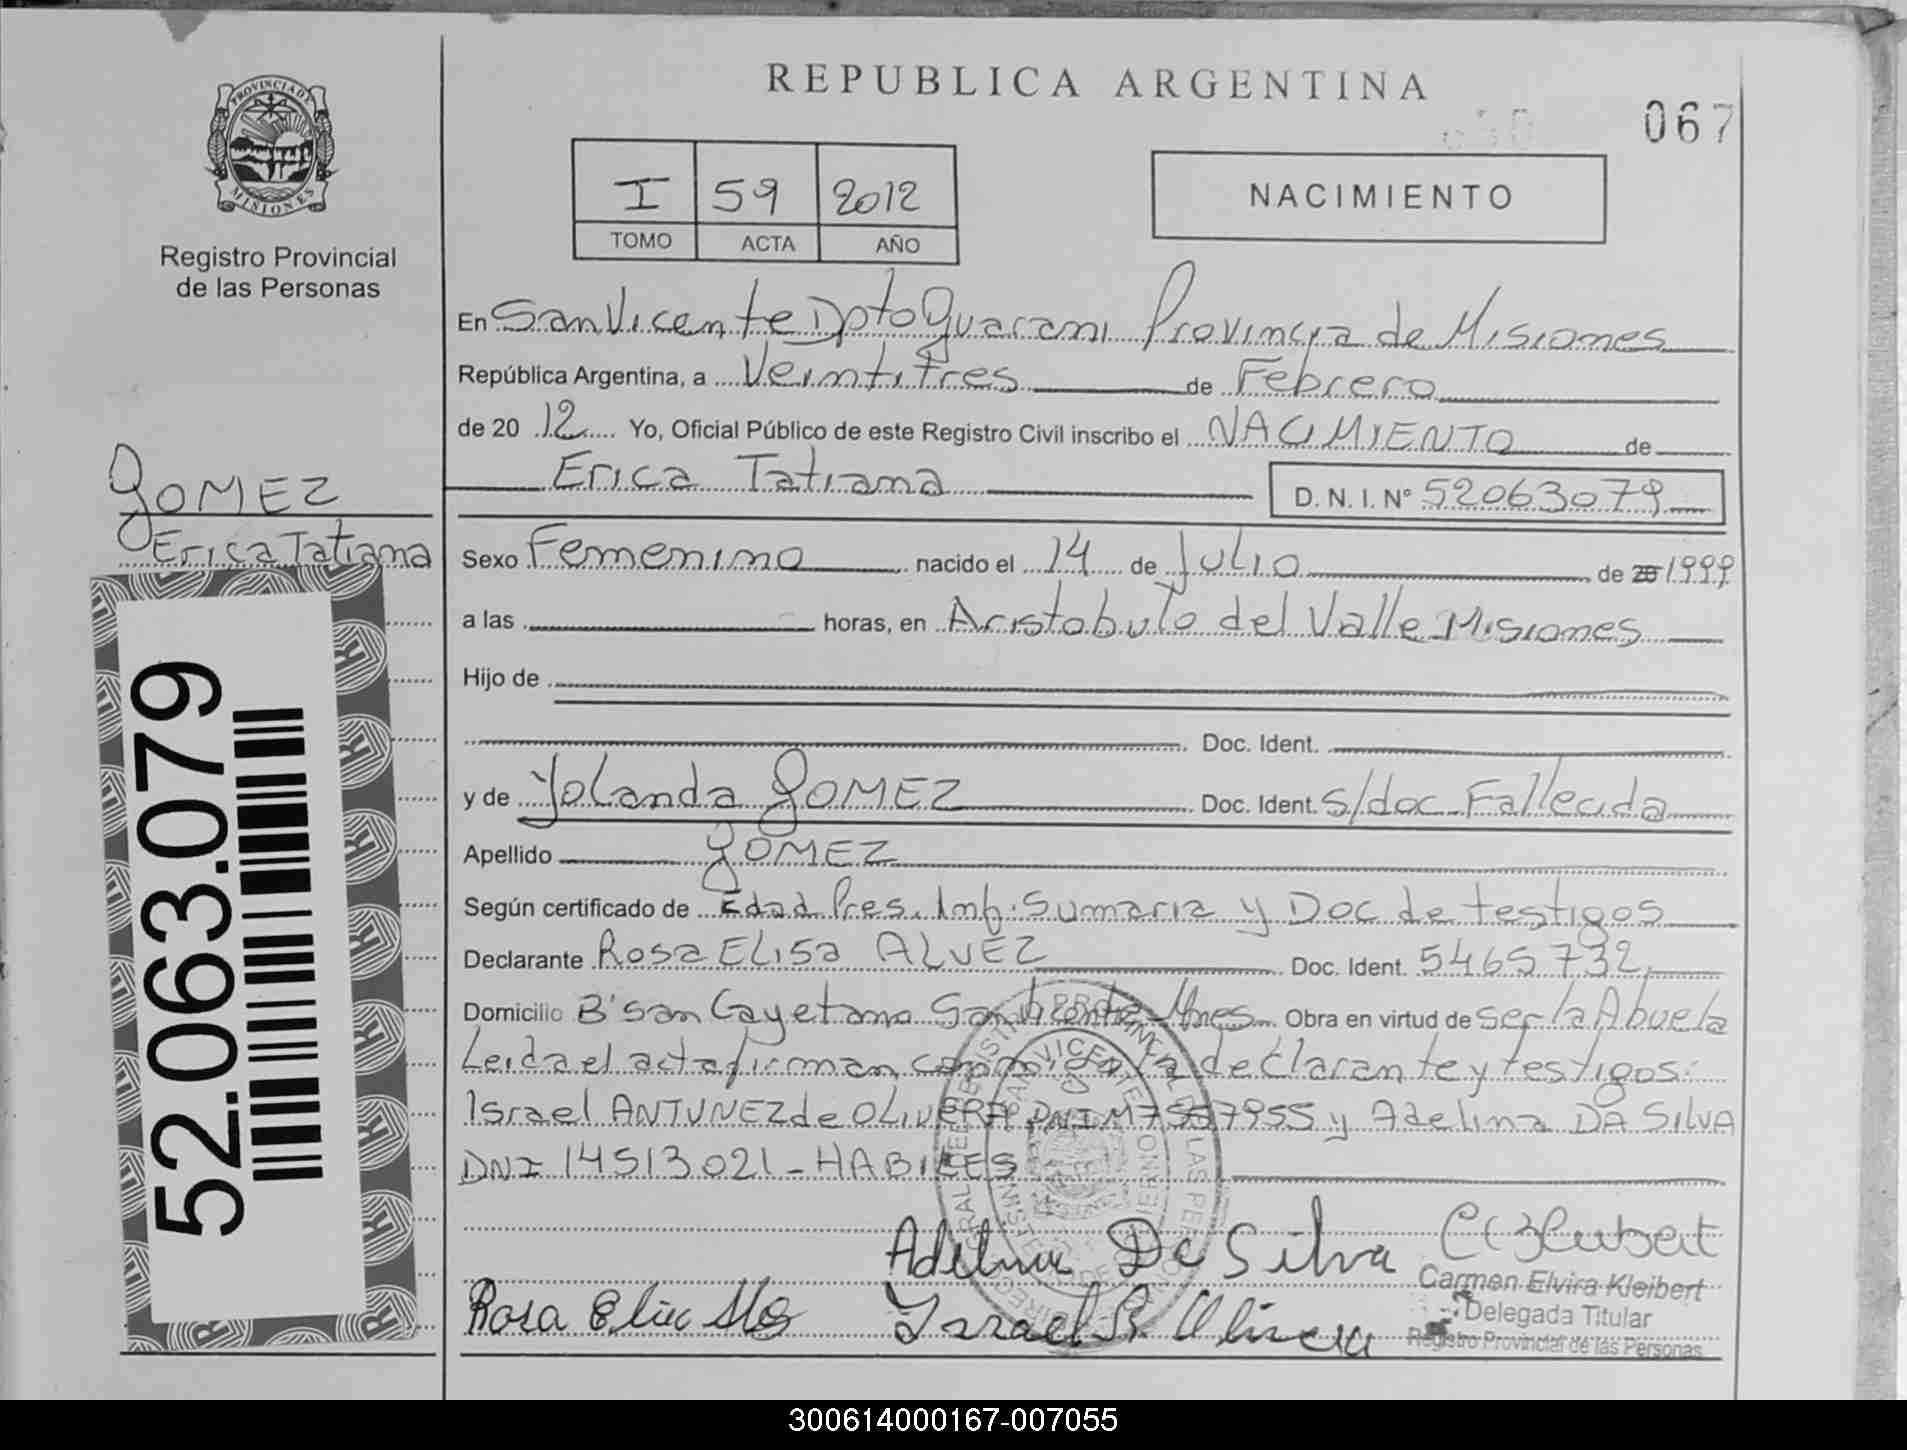 REPUBLICA ARGENTINA
067
PROVINCIA DE
MISIONES
Registro Provincial
de las Personas
I 59 2012
TOMO ACTA AÑO
NACIMIENTO
En San Vicente Dpto Guarani Provincia de Misiones
República Argentina, a Veintitres de Febrero
de 20 12 Yo, Oficial Público de este Registro Civil inscribo el NACIMIENTO de
Erica Tatiana D.N.I. Nº 52063079
GOMEZ
Erica Tatiana
Sexo Femenino nacido el 14 de Julio de 20 1999
a las horas, en Aristobulo del Valle Misiones
Hijo de
Doc. Ident.
y de Yolanda GOMEZ Doc. Ident. S/doc Fallecida
Apellido GOMEZ
Según certificado de Edad Pres. Inf. Sumaria y Doc de testigos
Declarante Rosa ELisa ALVEZ Doc. Ident. 5465732
Domicilio B° San Cayetano San Vicente Mnes Obra en virtud de ser la Abuela
Leida el acta firman conmigo la declarante y testigos:
Israel ANTUNEZ de OLIVERA DNI M7557955 y Adelina DA SILVA
DNI 14513021 - HABILES
52.063.079
Adelina Da Silva
Carmen Elvira Kleibert
Delegada Titular
Registro Provincial de las Personas
Rosa Israel
300614000167-007055